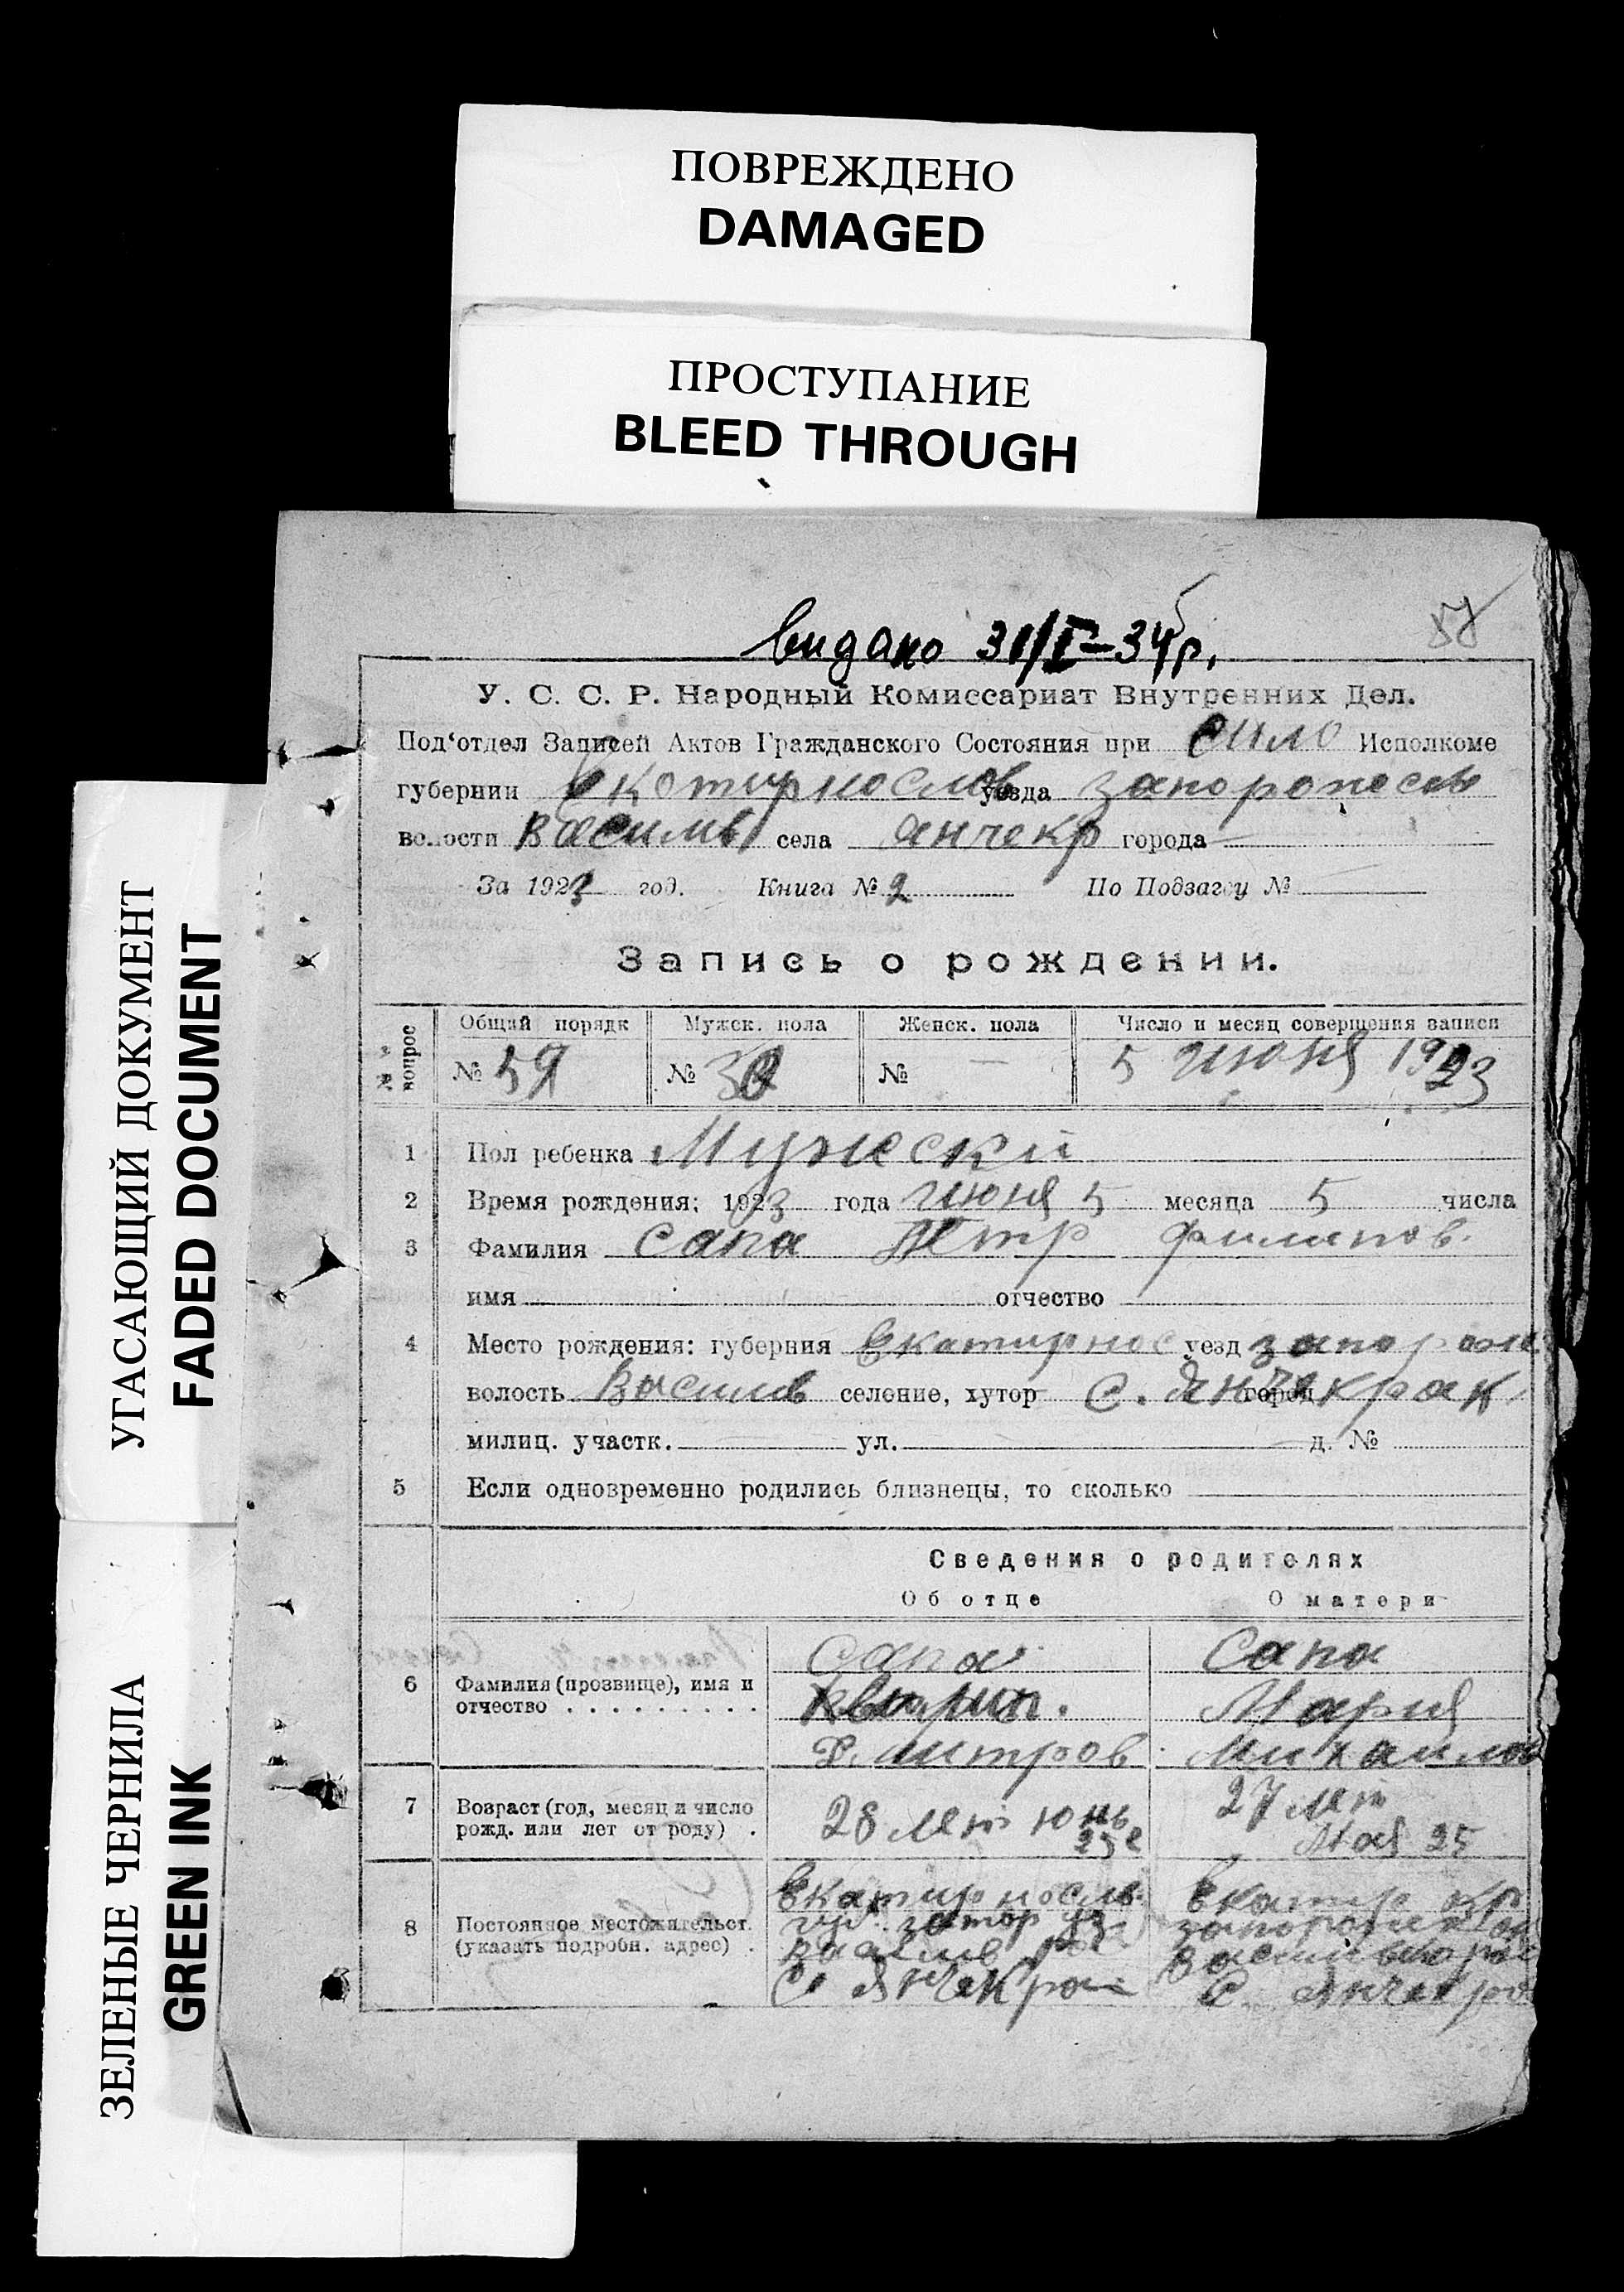 ПОВРЕЖДЕНО
DAMAGED
ПРОСТУПАНИЕ
BLEED THROUGH
УГАСАЮЩИЙ ДОКУМЕНТ
FADED DOCUMENT
ЗЕЛЕНЫЕ ЧЕРНИЛА
GREEN INK
видано 31/I–34 р.
У. С. С. Р. Народный Комиссариат Внутренних Дел.
Под‘отдел Записей Актов Гражданского Состояния при Исполкоме
губернии Екотирнослов уезда
волости Василив села Анчекр города
За 1923 год. Книга № 2 По Подзагсу №
Запись о рождении.
№№ вопрос
Общий порядк Мужск. пола Женск. пола Число и месяц совершения записи
№ № № – 5 июня 1923
1 Пол ребенка Мужески
2 Время рождения: 1923 года июня 5 месяца 5 числа
3 Фамилия Сапа Петр Филипов.
имя отчество
4 Место рождения: губерния Екатирнос уезд запорож
волость Василив селение, хутор С. Янчекрак город
милиц. участк. ул. д. №
5 Если одновременно родились близнецы, то сколько
Сведения о родителях
Об отце О матери
6 Фамилия (прозвище), имя и
отчество
Сапа
Дмитров
Сапа
Мария
Михаилов
7 Возраст (год, месяц и число
рожд. или лет от роду) .
28 лет юнь
27 лет
Мая 25
8 Постоянное местожительст.
(указать подробн. адрес) .
Екатирнослв.
губ. запор уз
василив
С Янчекрак
Екатир
С. Янчекрак